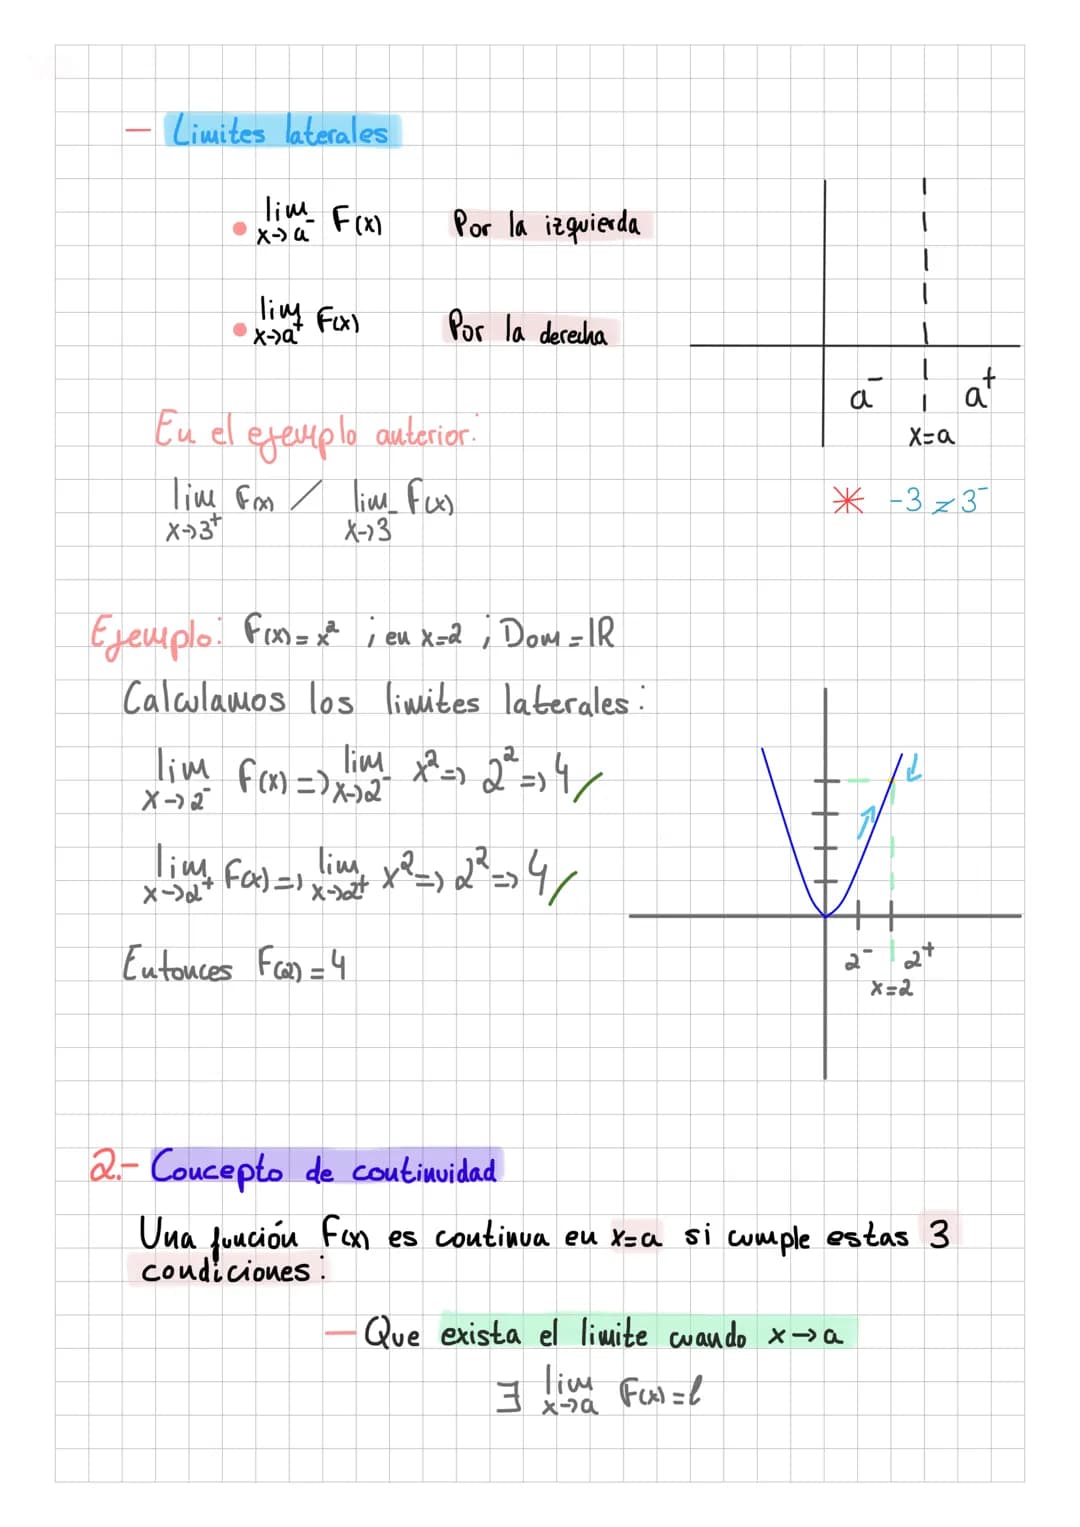 — Limites laterales
• lim x→a⁻ F(x) Por la izquierda
• lim x→a⁺ F(x) Por la derecha
a⁻ a⁺
x=a
En el ejemplo anterior:
lim x→3⁺ F(x) / lim x→3⁻ F(x)
* -3 ≠ 3⁻
Ejemplo: F(x)=x² ; en x=2 ; Dom=IR
Calculamos los limites laterales:
lim x→2⁻ F(x) => lim x→2⁻ x² => 2² => 4 ✓
lim x→2⁺ F(x) => lim x→2⁺ x² => 2² => 4 ✓
Entonces F(2)=4
2⁻ 2⁺
x=2
2.- Concepto de continuidad
Una función F(x) es continua en x=a si cumple estas 3
condiciones:
— Que exista el limite cuando x→a
∃ lim x→a F(x)=l